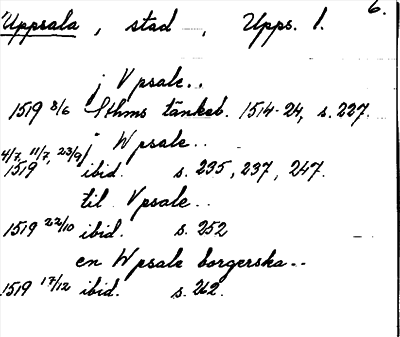 6.
Uppsala, stad, Upps. l.
j Vpsale..
1519 8/6 Sthms tänkeb. 1514-24, s. 227.
j Wpsale..
1519 4/7, 11/7, 23/9 ibid. s. 235, 237, 247.
til Vpsale..
1519 22/10 ibid. s. 252
en Wpsale borgerska..
1519 17/12 ibid. s. 262.